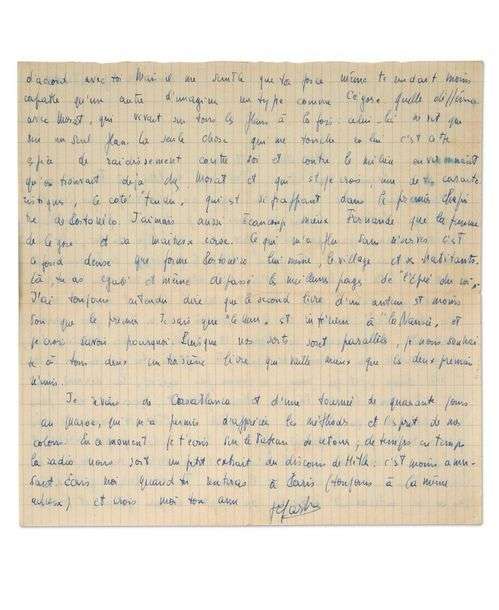 d'accord avec toi. Mais il me semble que ta force même te rendait moins
capable qu'un autre d'imaginer un type comme Légose. Quelle différence
avec Morat, qui vivait sur tous les plans à la fois : celui-là ne vit que
sur un seul plan. La seule chose qui me touche en lui c'est cette
espèce de raidissement contre soi et contre le milieu environnant
qu'on trouvait déjà chez Morat et qui est, je crois, une de tes caracté-
ristiques, le côté qui est si frappant dans le premier chapi-
tre de J'aimais aussi beaucoup mieux Fernande que la femme
de Légose et sa maîtresse corse. Ce qui m'a plu sans réserves c'est
ce fond dense que forme lui-même, le village et ses habitants.
Là, tu as égalé et même dépassé les meilleures pages de
J'ai toujours entendu dire que le second livre d'un auteur est moins
bon que le premier. Je sais que "le Mur" est inférieur à "la Nausée", et
je crois savoir pourquoi. Puisque nos sorts sont parallèles, je nous souhai-
te à tous deux un troisième livre qui vaille mieux que les deux premiers
réunis.
Je reviens de Casablanca et d'une tournée de quarante jours
au Maroc, qui m'a permis d'apprécier les méthodes et l'esprit de nos
colons. En ce moment je t'écris sur le bateau de retour ; de temps en temps
la radio nous sort un petit extrait du discours de Hitler : c'est moins amu-
sant. Écris-moi quand tu rentreras à Paris (toujours à la même
adresse) et crois moi ton ami
JPSartre